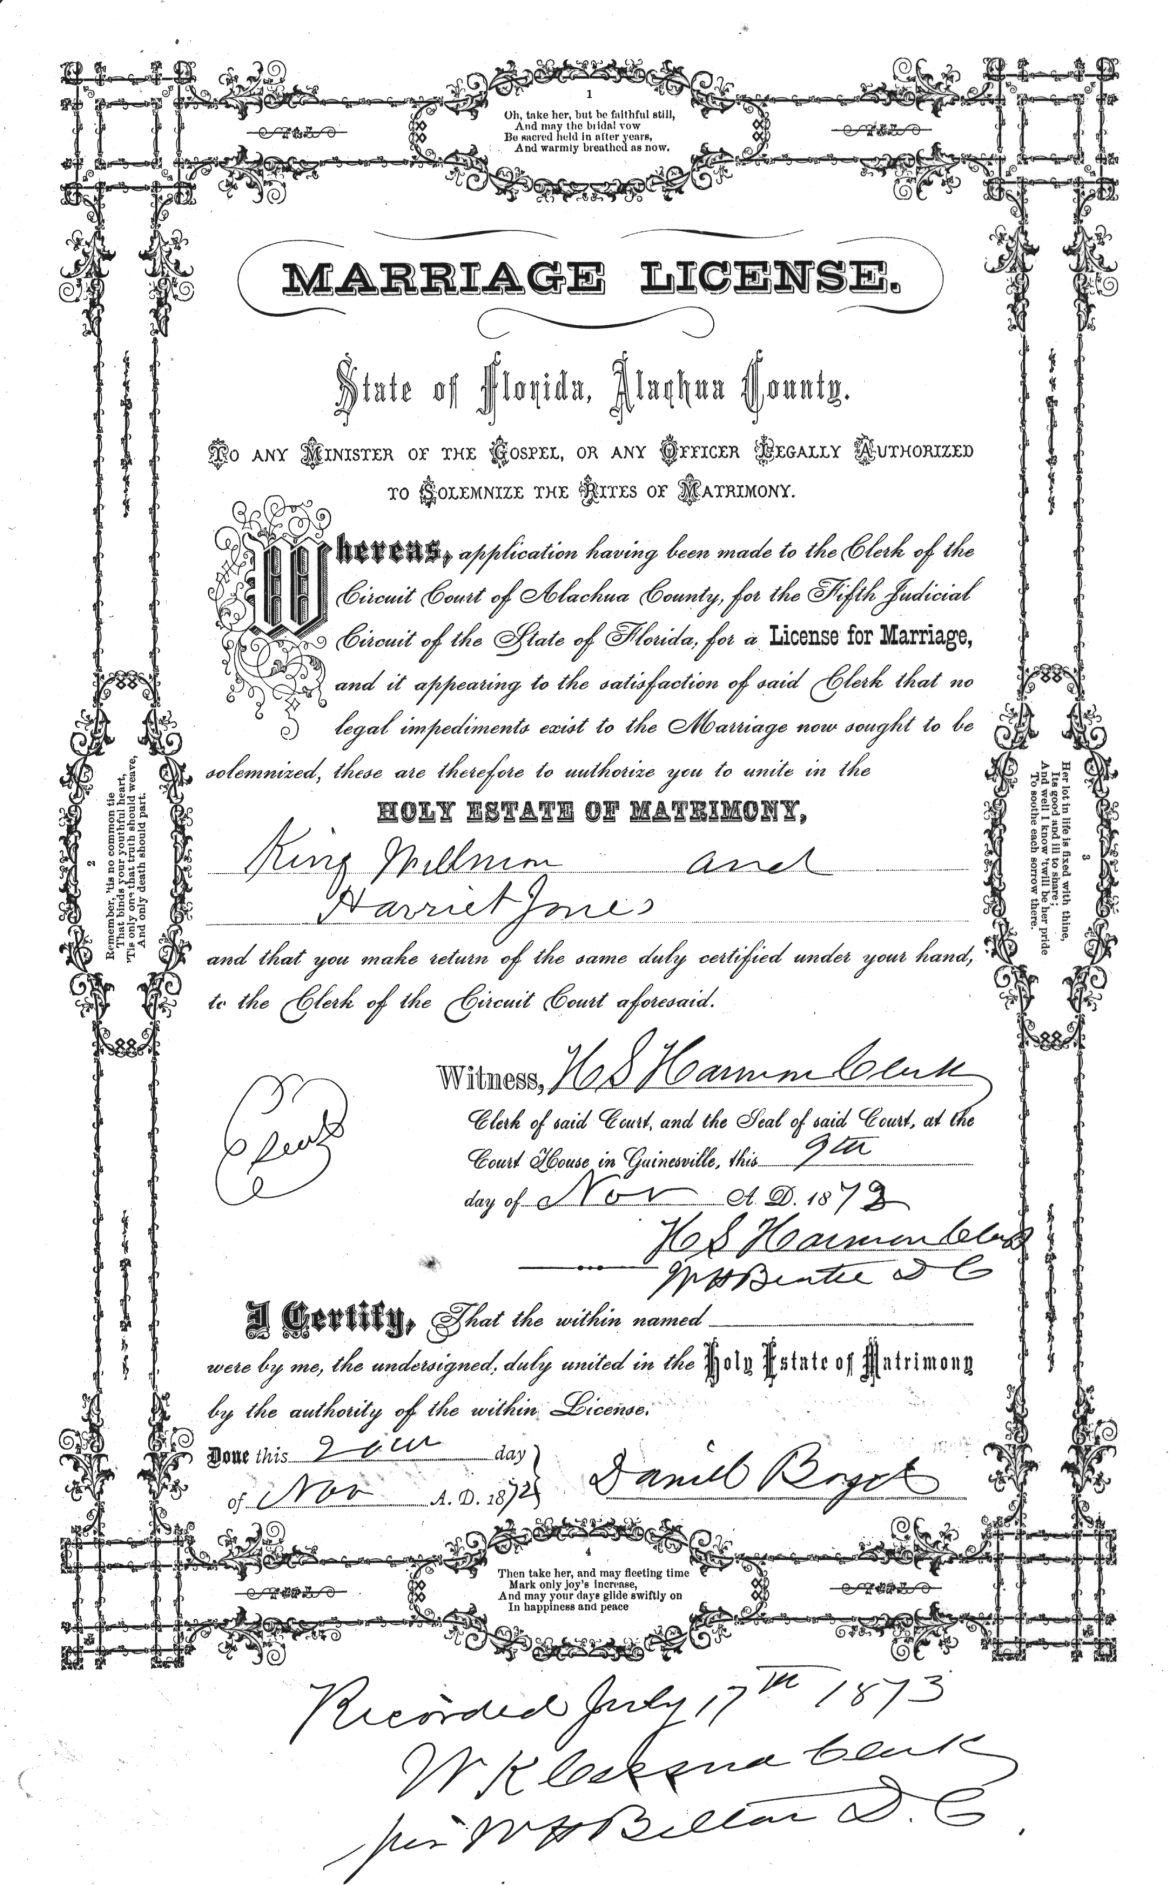 1
Oh, take her, but be faithful still,
And may the bridal vow
Be sacred held in after years,
And warmly breathed as now.
MARRIAGE LICENSE.
State of Florida, Alachua County.
TO ANY MINISTER OF THE GOSPEL, OR ANY OFFICER LEGALLY AUTHORIZED
TO SOLEMNIZE THE RITES OF MATRIMONY.
Whereas, application having been made to the Clerk of the
Circuit Court of Alachua County, for the Fifth Judicial
Circuit of the State of Florida, for a License for Marriage,
and it appearing to the satisfaction of said Clerk that no
legal impediments exist to the Marriage now sought to be
solemnized, these are therefore to authorize you to unite in the
HOLY ESTATE OF MATRIMONY,
King and
Harriet Jones
and that you make return of the same duly certified under your hand,
to the Clerk of the Circuit Court aforesaid.
2
Remember, 'tis no common tie
That binds your youthful heart,
'Tis only one that truth should weave,
And only death should part.
3
Her lot in life is fixed with thine,
Its good and ill to share;
And well I know 'twill be her pride
To soothe each sorrow there.
Witness, H S Harmon Clerk
Clerk of said Court, and the Seal of said Court, at the
Court House in Gainesville, this 9th
day of Nov A. D. 1872
H S Harmon Clerk
W H D C
I Certify, That the within named
were by me, the undersigned, duly united in the Holy Estate of Matrimony
by the authority of the within License.
Done this day
of Nov A. D. 1872
Daniel
4
Then take her, and may fleeting time
Mark only joy's increase,
And may your days glide swiftly on
In happiness and peace
Recorded July 17th 1873
W K Cessna Clerk
per W H D. C.